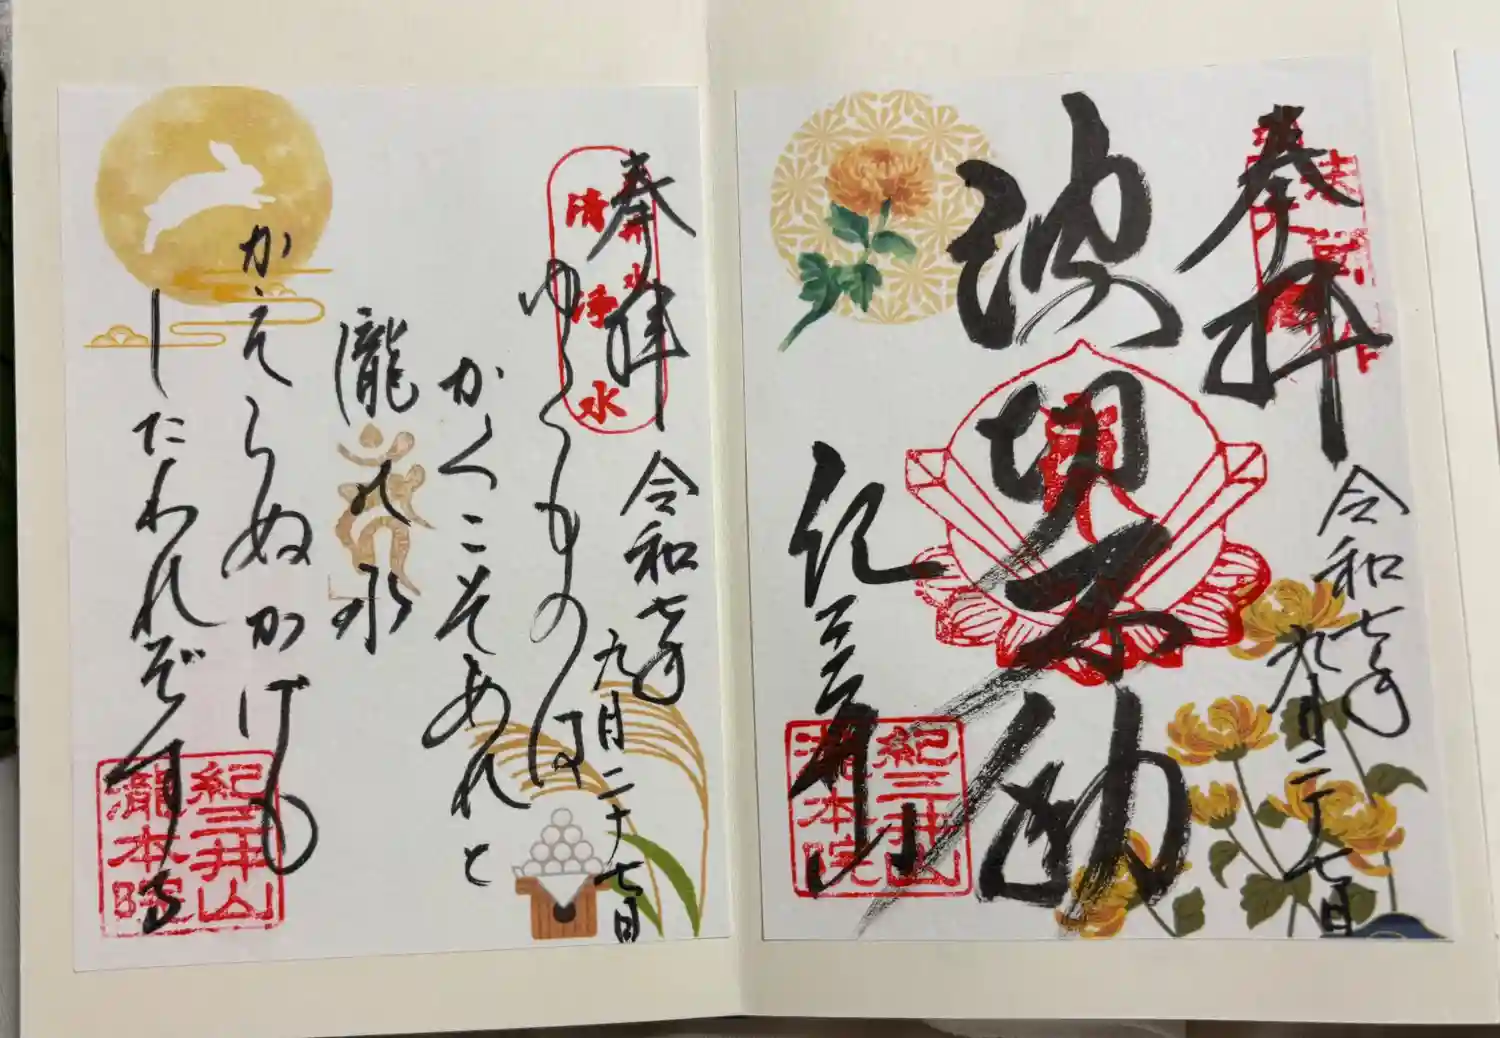 奉拝
令和七年
九月二十七日
波切不動
紀三井山
紀三井山
瀧本院
奉拝
清浄水
令和七年
九月二十七日
ゆくものは
かくこそあれと
瀧の水
かえらぬかげも
したわれぞする
紀三井山
瀧本院